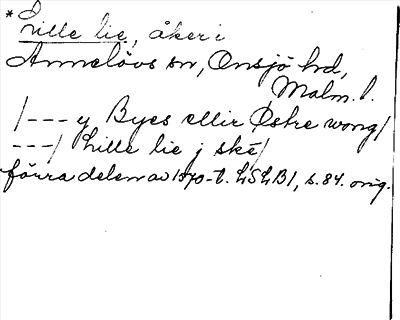 * Lille lie, åker i
Annelövs sn, Onsjö hd,
Malm. l.
/--- y Byes ellir Østre wong/
---/ Lille lie j skē/
förra delen av 1570-t. LSLB1, s. 84. orig.